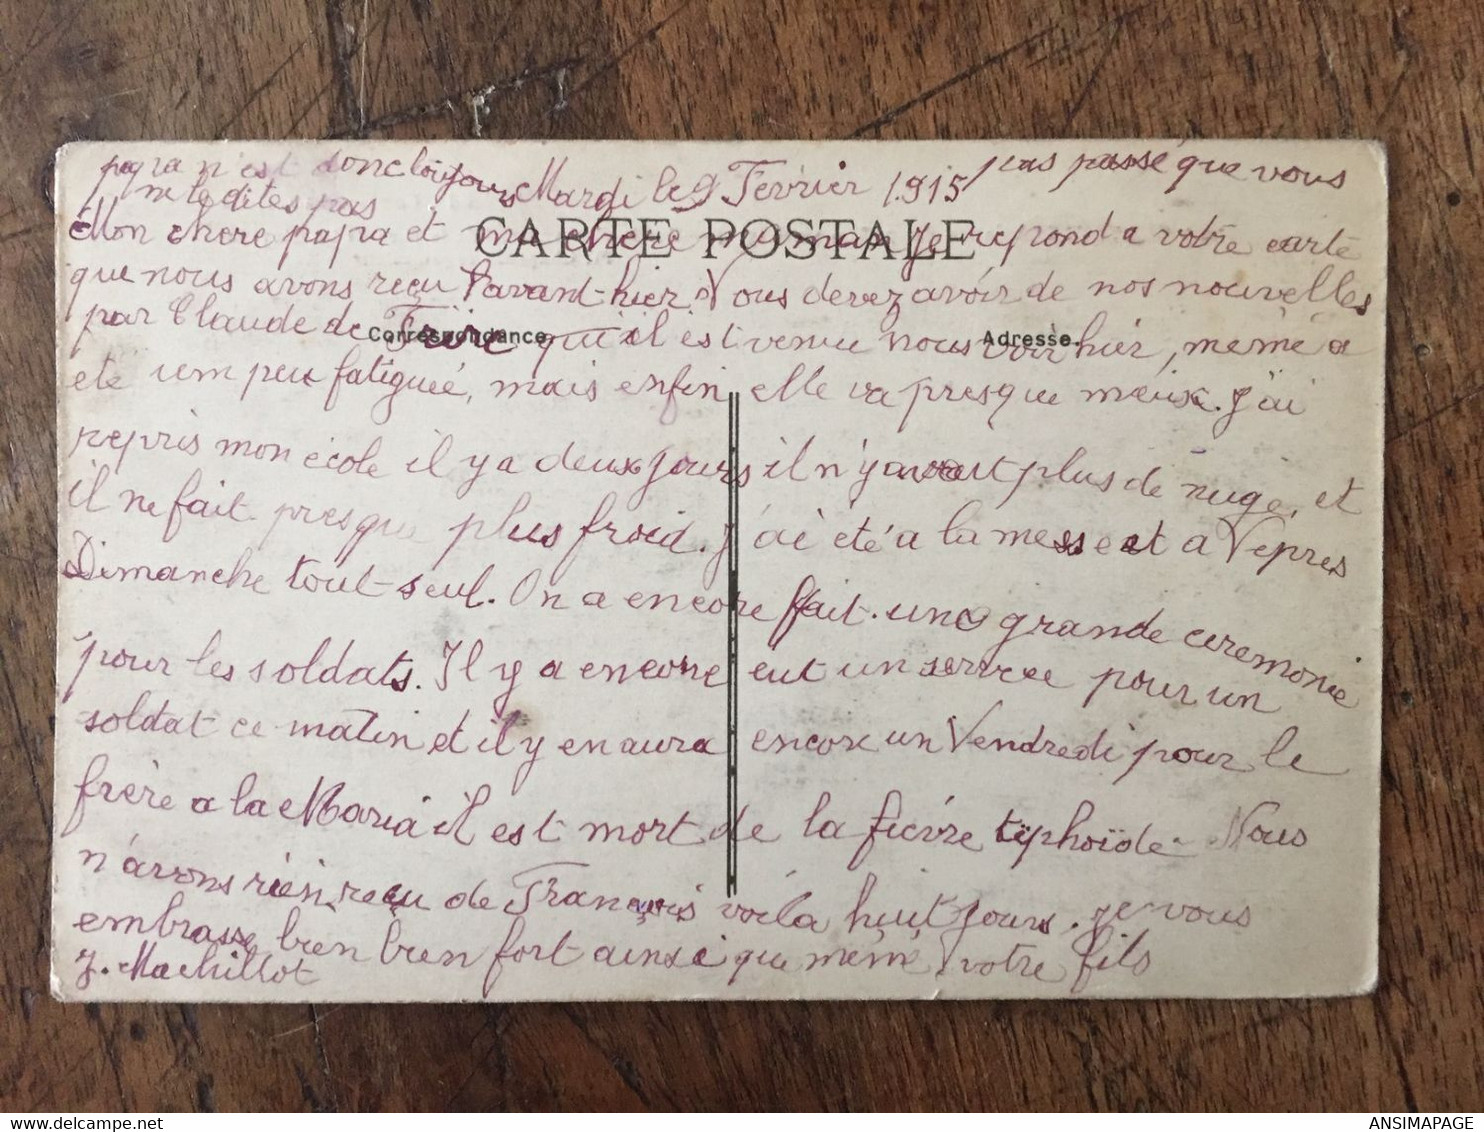 papa n'est donc toujours Mardi le 9 Février 1915 pas passé que vous
ne le dites pas
CARTE POSTALE
Mon chere papa et ma chere maman je repond a votre carte
que nous avons reçu l'avant-hier. Vous devez avoir de nos nouvelles
par Claude de qu'il est venu nous voir hier, mémé a
Correspondance Adresse.
été um peu fatigueé, mais enfin elle va presque mieux. J'ai
repris mon école il y a deux jours il n'y avait plus de nuge, et
il ne fait presque plus froid. J'ai été a la messe et a Vepres
Dimanche tout-seul. On a encore fait une grande ceremonie
pour les soldats. Il y a encore eut un service pour un
soldat ce matin et il y en aura encore un Vendredi pour le
frère a la Maria il est mort de la fièvre typhoïde. Nous
n'avons rien reçu de François voila huit jours. je vous
embrasse bien bien fort ainsi que mémé votre fils
J. Machillot
ANSIMAPAGE